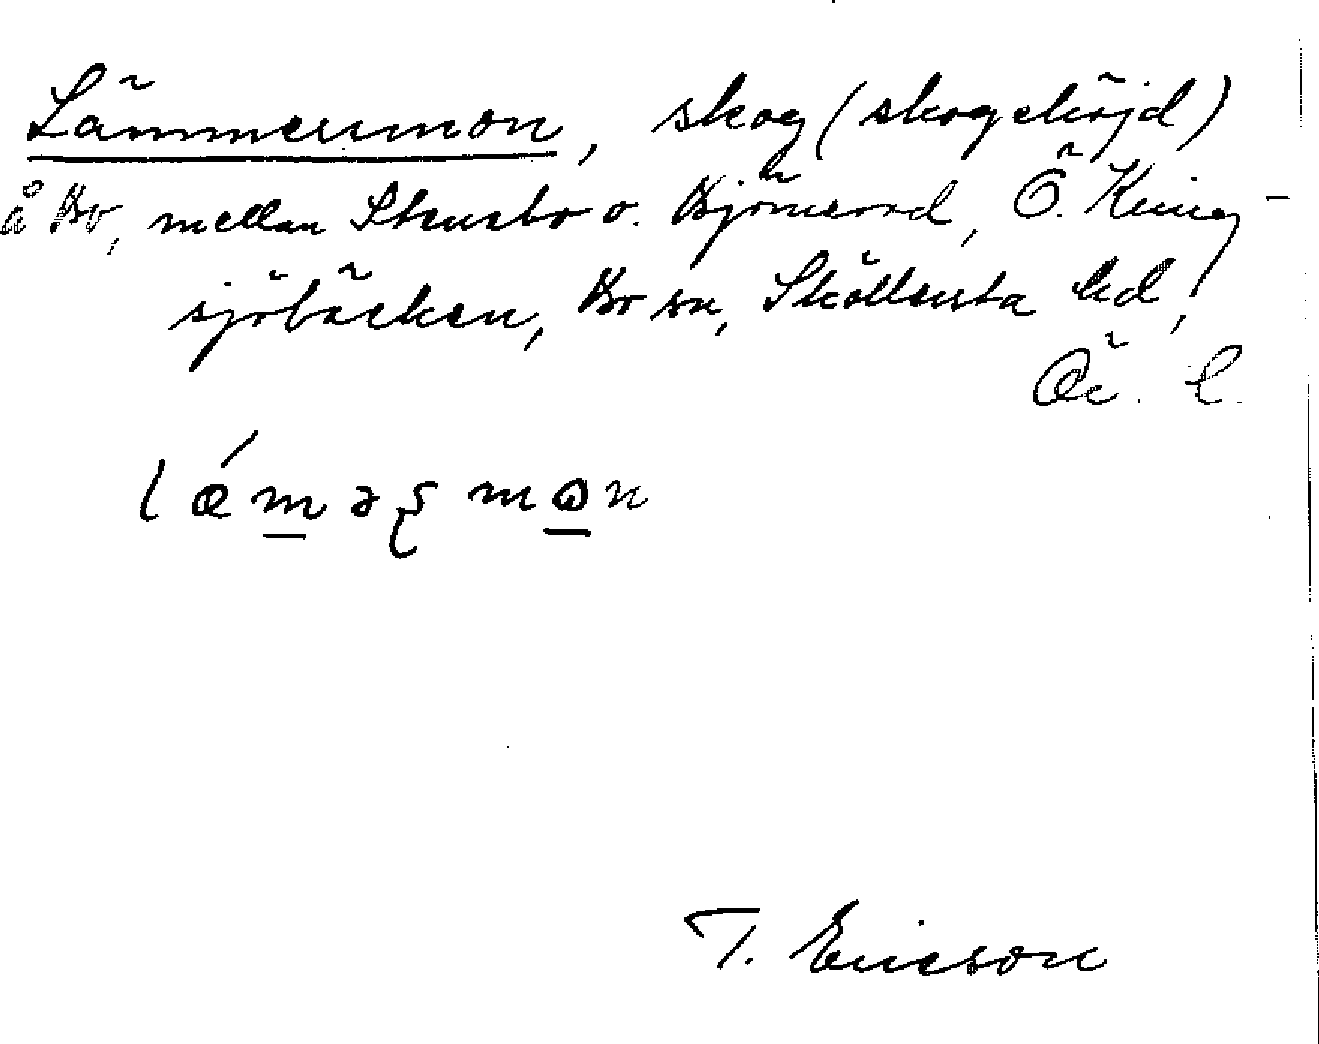 Lämmermon, skog (skogshöjd)
å Bo, mellan Skusbo o. Björnerud, Ö. Kling-
sjöbäcken, Bo sn, Sköllersta hd,
Ör. l.
lǽmər mɷn
T. Ericson